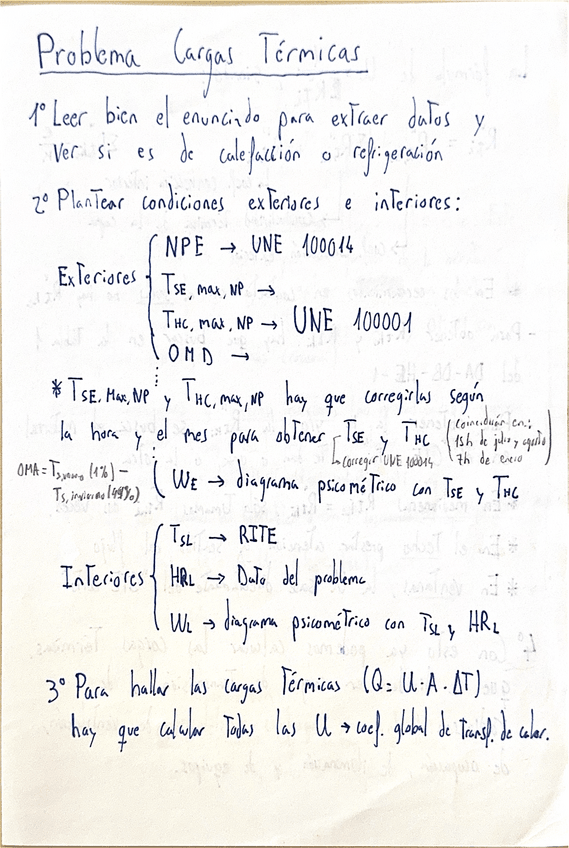 Problema Cargas Térmicas
1º Leer bien el enunciado para extraer datos y
ver si es de calefacción o refrigeración
2º Plantear condiciones exteriores e interiores:
Exteriores
NPE → UNE 100014
TSE, max, NP →
THC, max, NP → UNE 100001
OMD →
* TSE, Max, NP y THC, max, NP hay que corregirlas según
la hora y el mes para obtener TSE y THC
(coincidirán en:
15h de julio y agosto
7h de enero)
→ corregir UNE 100014
OMA = Ts,verano (1%) -
Ts, invierno (99%)
WE → diagrama psicométrico con TSE y THC
Interiores
TSL → RITE
HRL → Dato del problema
WL → diagrama psicométrico con TSL y HRL
3º Para hallar las cargas Térmicas (Q = U · A · ΔT)
hay que calcular Todas las U → coef. global de transf. de calor.